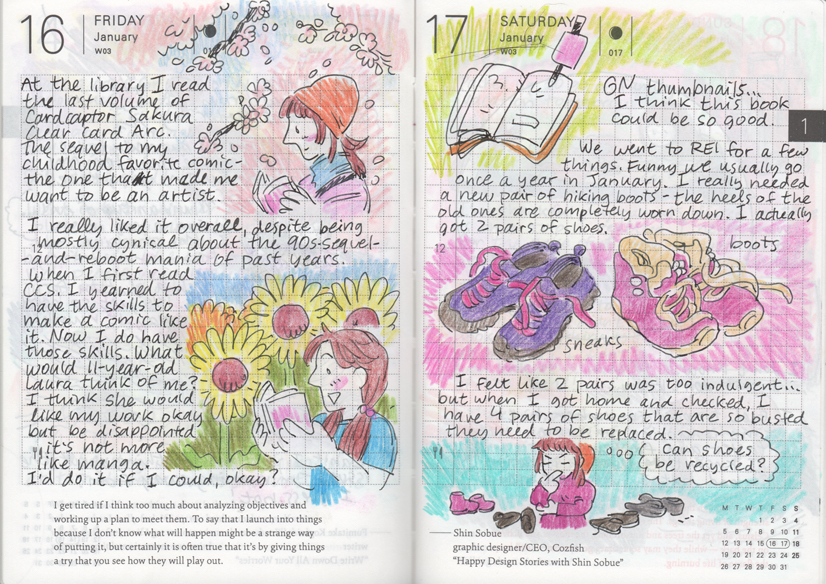 16
FRIDAY
January
W03
At the library I read
the last volume of
Cardcaptor Sakura
Clear Card Arc.
The sequel to my
childhood favorite comic-
the one that made me
want to be an artist.
I really liked it overall, despite being
mostly cynical about the 90s-sequel-
-and-reboot mania of past years.
12
When I first read
CCS, I yearned to
have the skills to
make a comic like
it. Now I do have
those skills. What
would 11-year-old
Laura think of me?
I think she would
like my work okay
but be disappointed
it's not more
like manga.
I'd do it if I could, okay?
I get tired if I think too much about analyzing objectives and
working up a plan to meet them. To say that I launch into things
because I don't know what will happen might be a strange way
of putting it, but certainly it is often true that it's by giving things
a try that you see how they will play out.
17
SATURDAY
January
W03
017
1
GN thumbnails...
I think this book
could be so good.
We went to REI for a few
things. Funny, we usually go
once a year in January. I really needed
a new pair of hiking boots - the heels of the
old ones are completely worn down. I actually
got 2 pairs of shoes.
12
boots
sneaks
I felt like 2 pairs was too indulgent...
but when I got home and checked, I
have 4 pairs of shoes that are so busted
they need to be replaced.
can shoes
be recycled?
Shin Sobue
graphic designer/CEO, Cozfish
"Happy Design Stories with Shin Sobue"
M T W T F S S
1 2 3 4
5 6 7 8 9 10 11
12 13 14 15 16 17 18
19 20 21 22 23 24 25
26 27 28 29 30 31